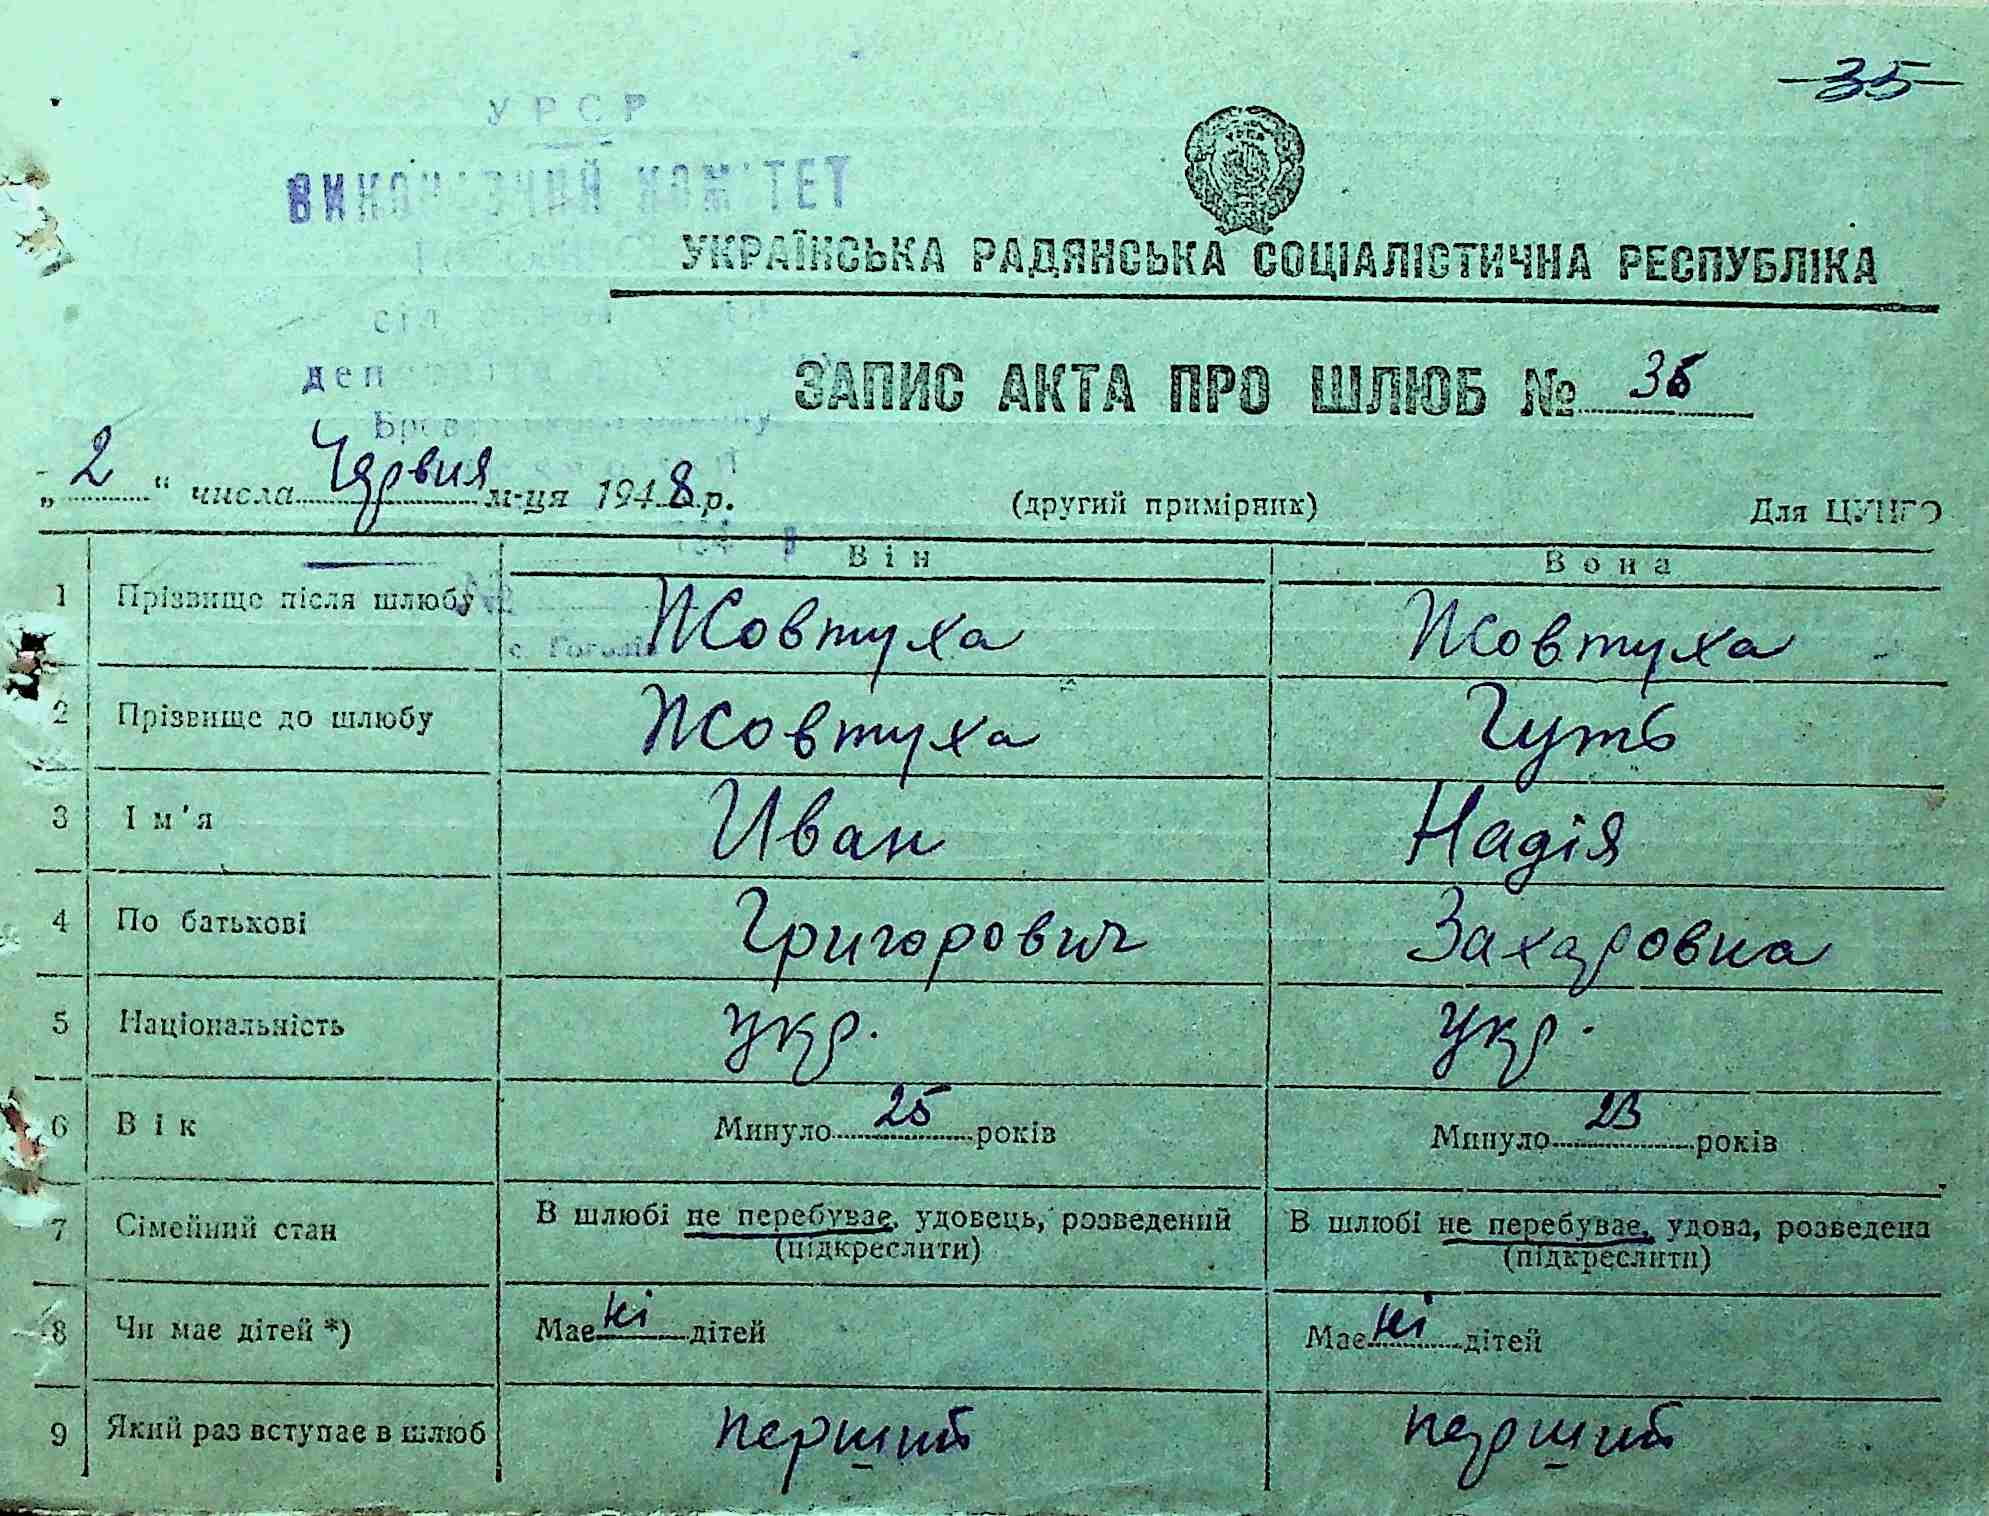 -35-
УРСР
ВИКОНАВЧИЙ КОМІТЕТ
УКРАЇНСЬКА РАДЯНСЬКА СОЦІАЛІСТИЧНА РЕСПУБЛІКА
ЗАПИС АКТА ПРО ШЛЮБ №
„2“ числа Червня м-ця 1948 р. (другий примірник) Для ЦУНГО
Він Вона
1 Прізвище після шлюбу Жовтуха Жовтуха
с. Гоголів
2 Прізвище до шлюбу Жовтуха Гуть
3 Ім'я Иван Надія
4 По батькові Григорович Захаровна
5 Національність укр. укр.
6 Вік Минуло 25 років Минуло 23 років
7 Сімейний стан В шлюбі не перебуває, удовець, розведений В шлюбі не перебуває, удова, розведена
(підкреслити) (підкреслити)
8 Чи має дітей *) Має ні дітей Має ні дітей
9 Який раз вступає в шлюб перший перший